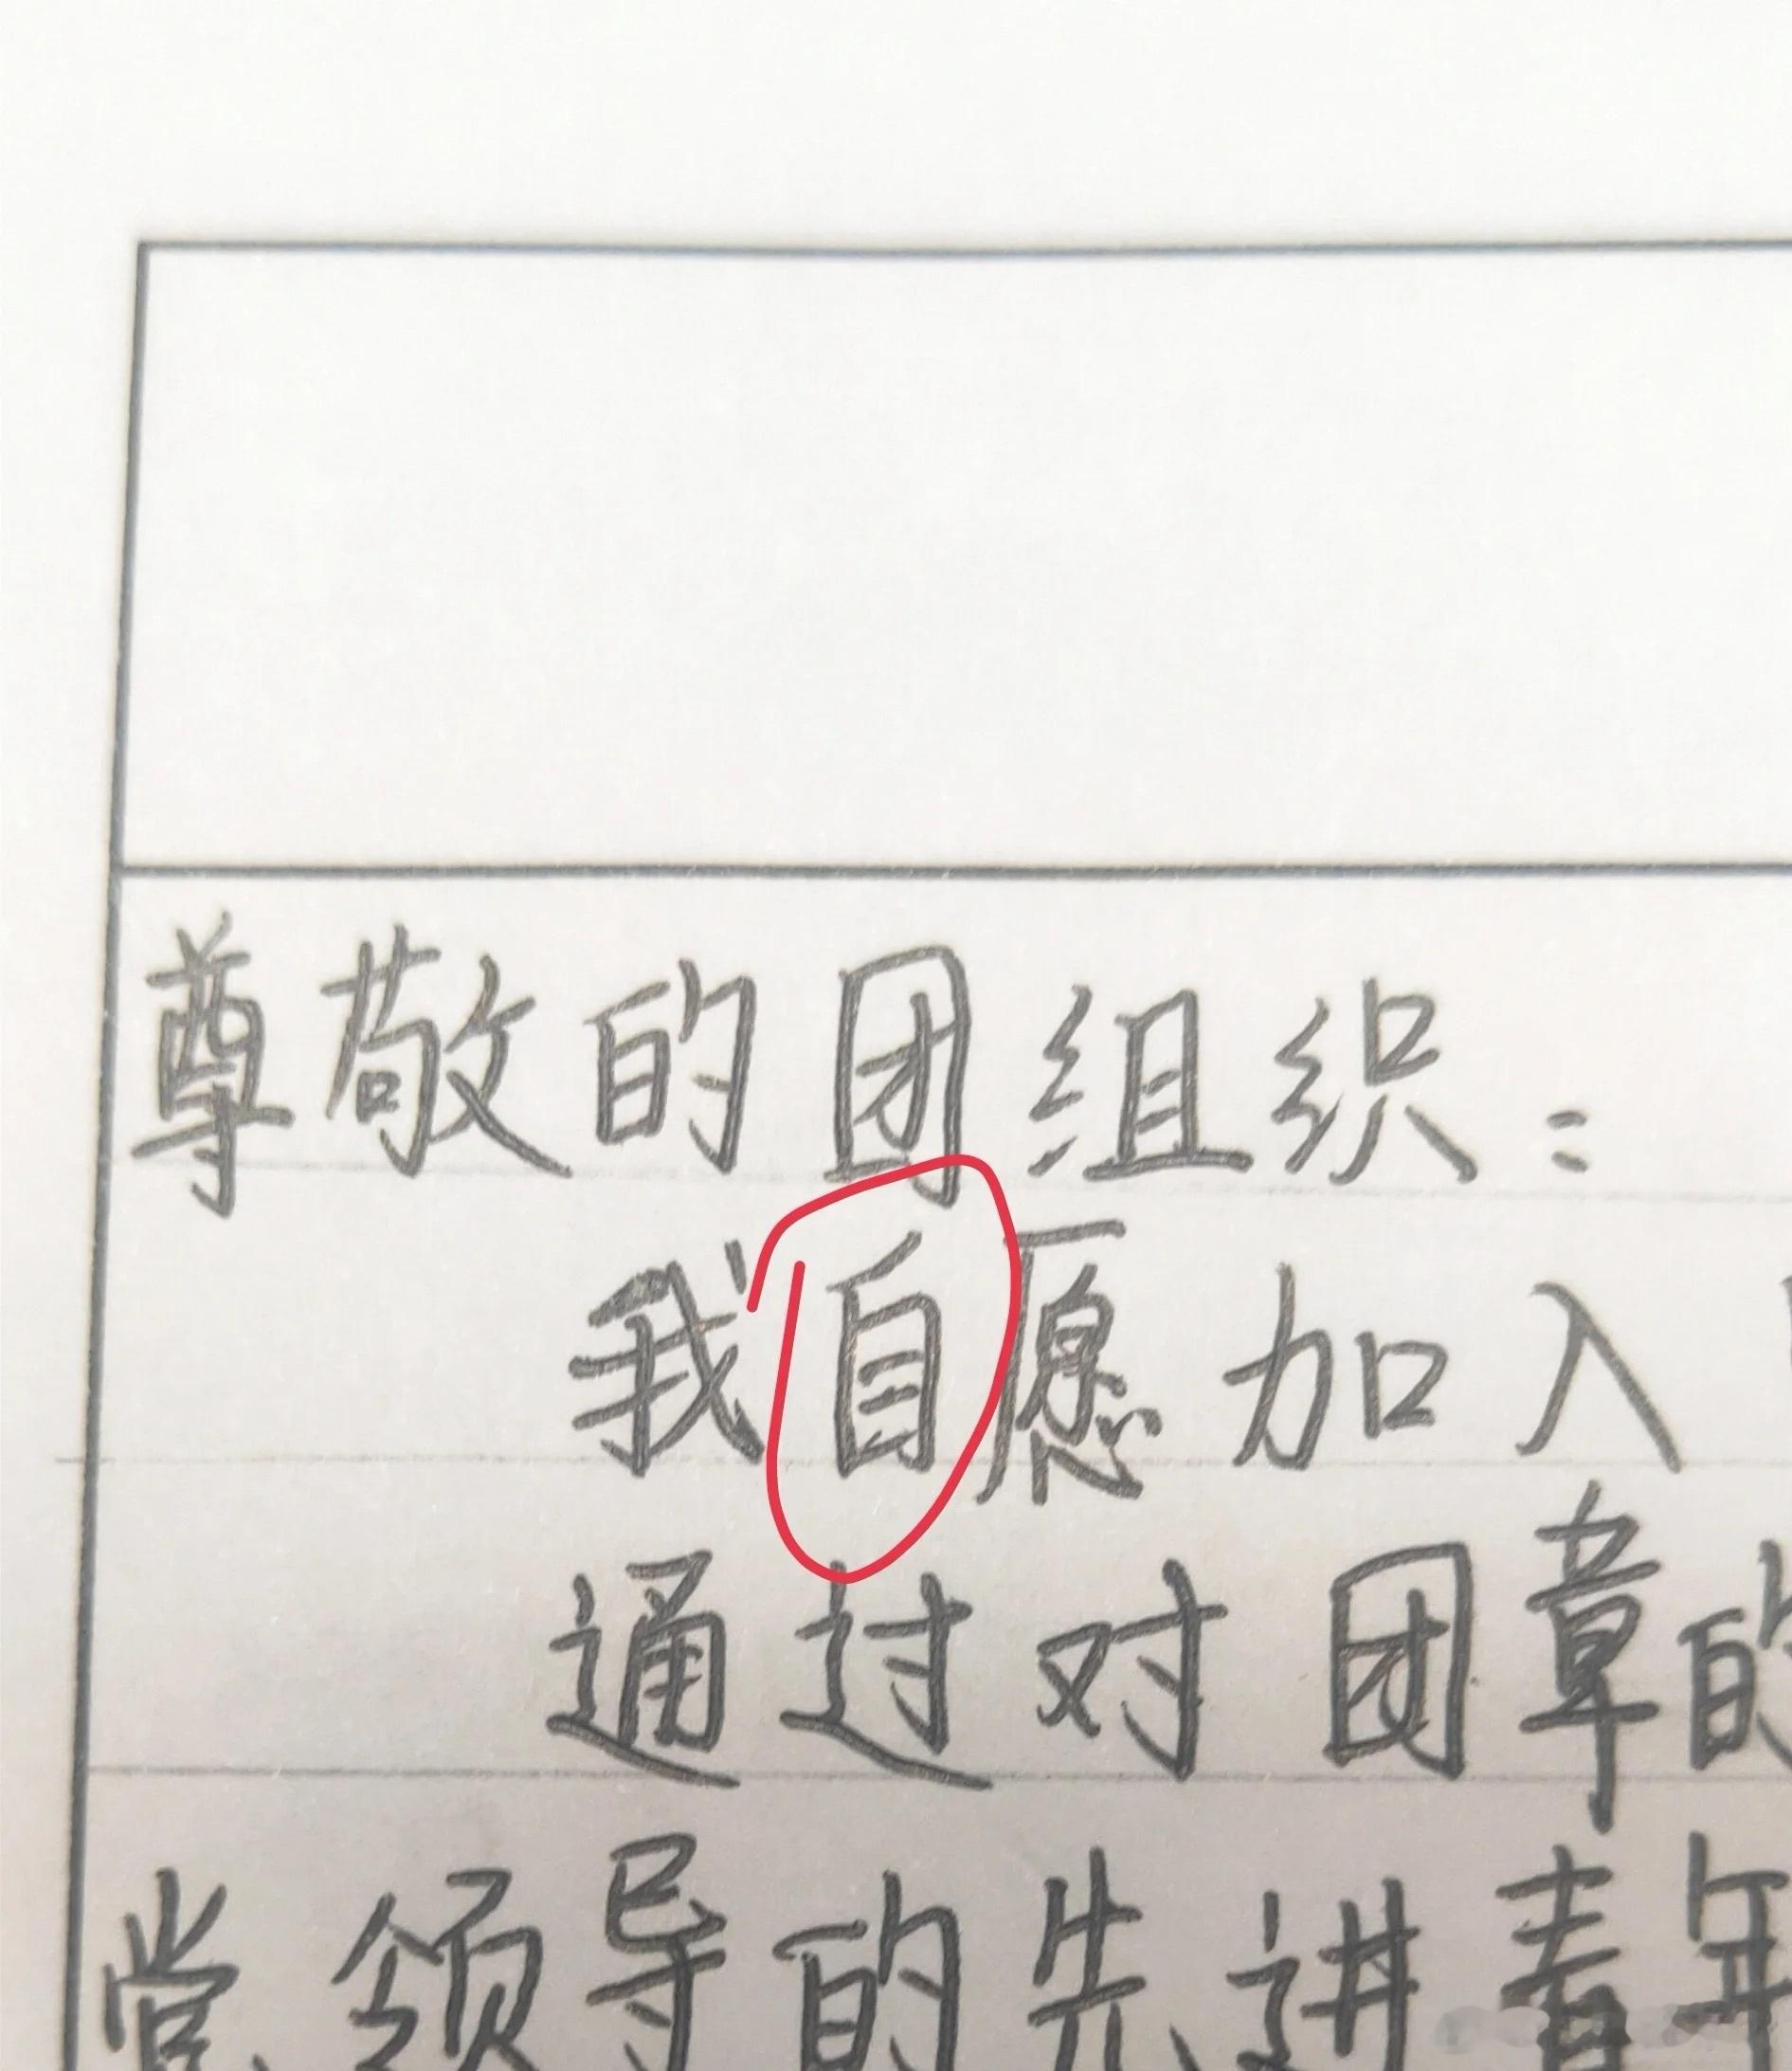 尊敬的团组织：
我自愿加入
通过对团章的
党领导的先进青年